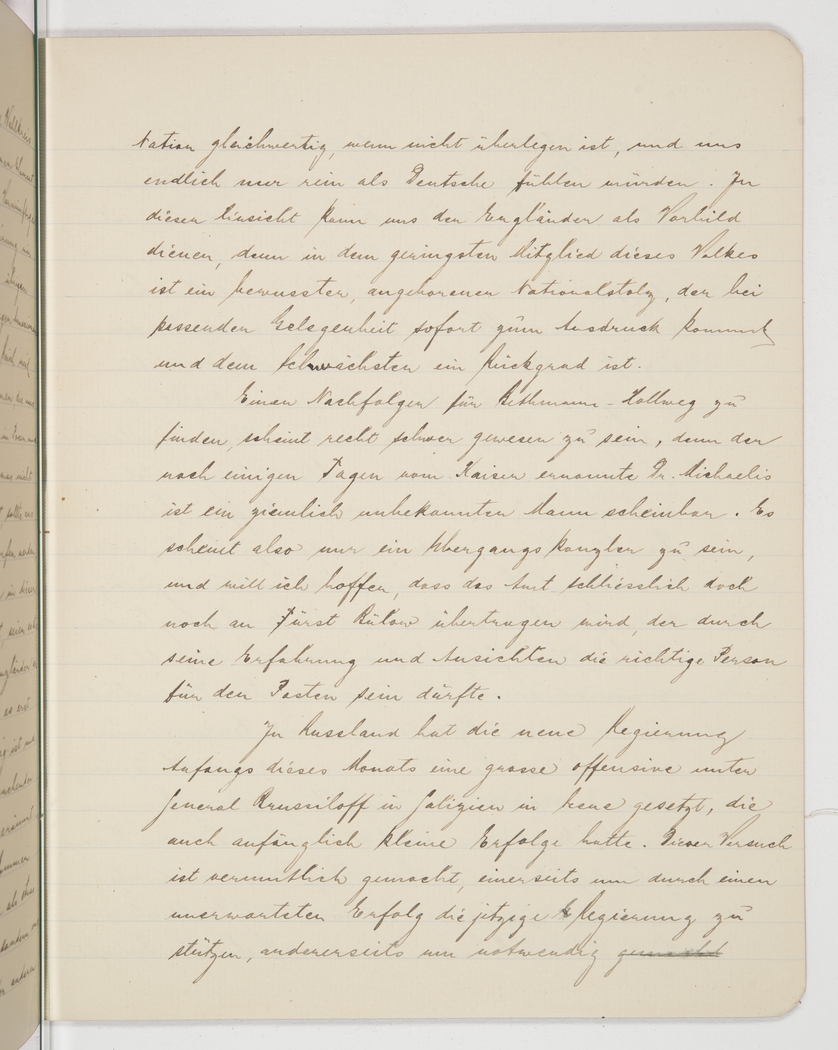 Nation gleichwertig, wenn nicht überlegen ist, und uns
endlich nur rein als Deutsche fühlen würden. In
dieser Hinsicht kann uns der Engländer als Vorbild
dienen, denn in dem geringsten Mitglied dieses Volkes
ist ein bewusster, angeborener Nationalstolz, der bei
passender Gelegenheit sofort zum Ausdruck kommt
und dem Schwächsten ein Rückgrad ist.
Einen Nachfolger für Bethmann-Hollweg zu
finden, scheint recht schwer gewesen zu sein, denn der
nach einigen Tagen vom Kaiser ernannte Dr. Michaelis
ist ein ziemlich unbekannter Mann scheinbar. Es
scheint also nur ein Übergangskanzler zu sein,
und will ich hoffen, dass das Amt schliesslich doch
noch an Fürst Bülow übertragen wird, der durch
seine Erfahrung und Ansichten die richtige Person
für den Posten sein dürfte.
In Russland hat die neue Regierung
Anfangs dieses Monats eine grosse offensive unter
General Brussiloff in Galizien in Scene gesetzt, die
auch anfänglich kleine Erfolge hatte. Dieser Versuch
ist vermutlich gemacht, einerseits um durch einen
unerwarteten Erfolg die jetzige Regierung zu
stützen, andererseits um notwendig